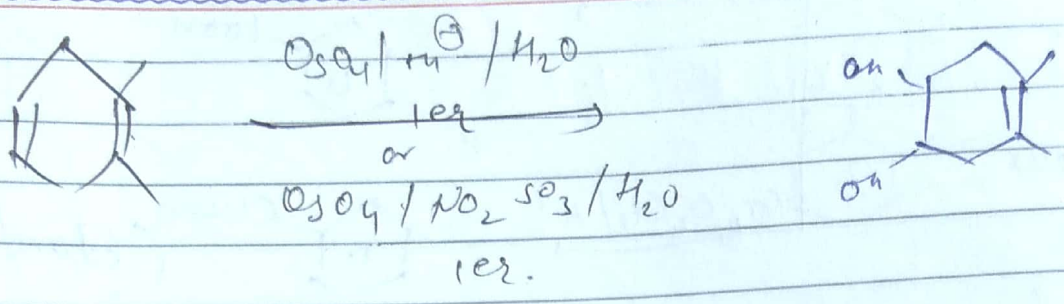 OsO4 / H⊕ / H2O
1eq
or
OsO4 / NO2 SO3 / H2O
1eq.
OH
OH